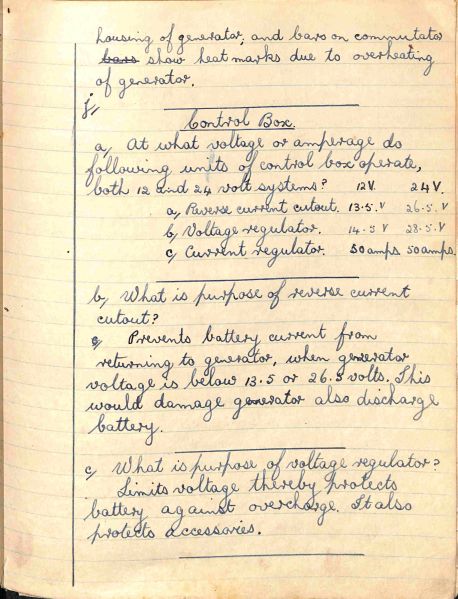 housing of generator, and bars on commutator
bars show heat marks due to overheating
of generator.
j,
Control Box.
a, At what voltage or amperage do
following units of control box operate,
both 12 and 24 volt systems? 12V. 24V.
a, Reverse current cutout. 13.5.V 26.5.V
b, Voltage regulator. 14.5 V 28.5.V
c, Current regulator. 50 amps 50 amps.
b, What is purpose of reverse current
cutout?
Prevents battery current from
returning to generator, when generator
voltage is below 13.5 or 26.5 volts. This
would damage generator also discharge
battery.
c, What is purpose of voltage regulator?
Limits voltage thereby protects
battery against overcharge. It also
protects accessories.